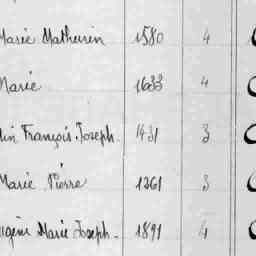 Marie Mathurin 1580 4
Marie 1633 4
François Joseph. 1431 3
Marie Pierre 1261 3
Marie Joseph. 1891 4